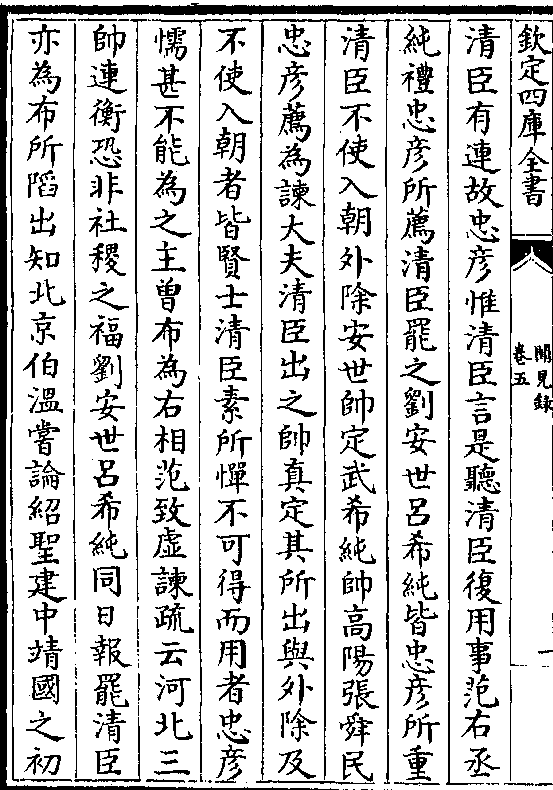 欽定四庫全書
聞見錄
卷五
清臣有連故忠彦惟清臣言是聽清臣復用事范右丞
純禮忠彦所薦清臣罷之劉安世吕希純皆忠彦所重
清臣不使入朝外除安世帥定武希純帥高陽張舜民
忠彦薦為諫大夫清臣出之帥真定其所出與外除及
不使入朝者皆賢士清臣素所憚不可得而用者忠彦
懦甚不能為之主曾布為右相范致虚諫疏云河北三
帥連衡恐非社稷之福劉安世吕希純同日報罷清臣
亦為布所䧟出知北京伯溫嘗論紹聖建中靖國之初